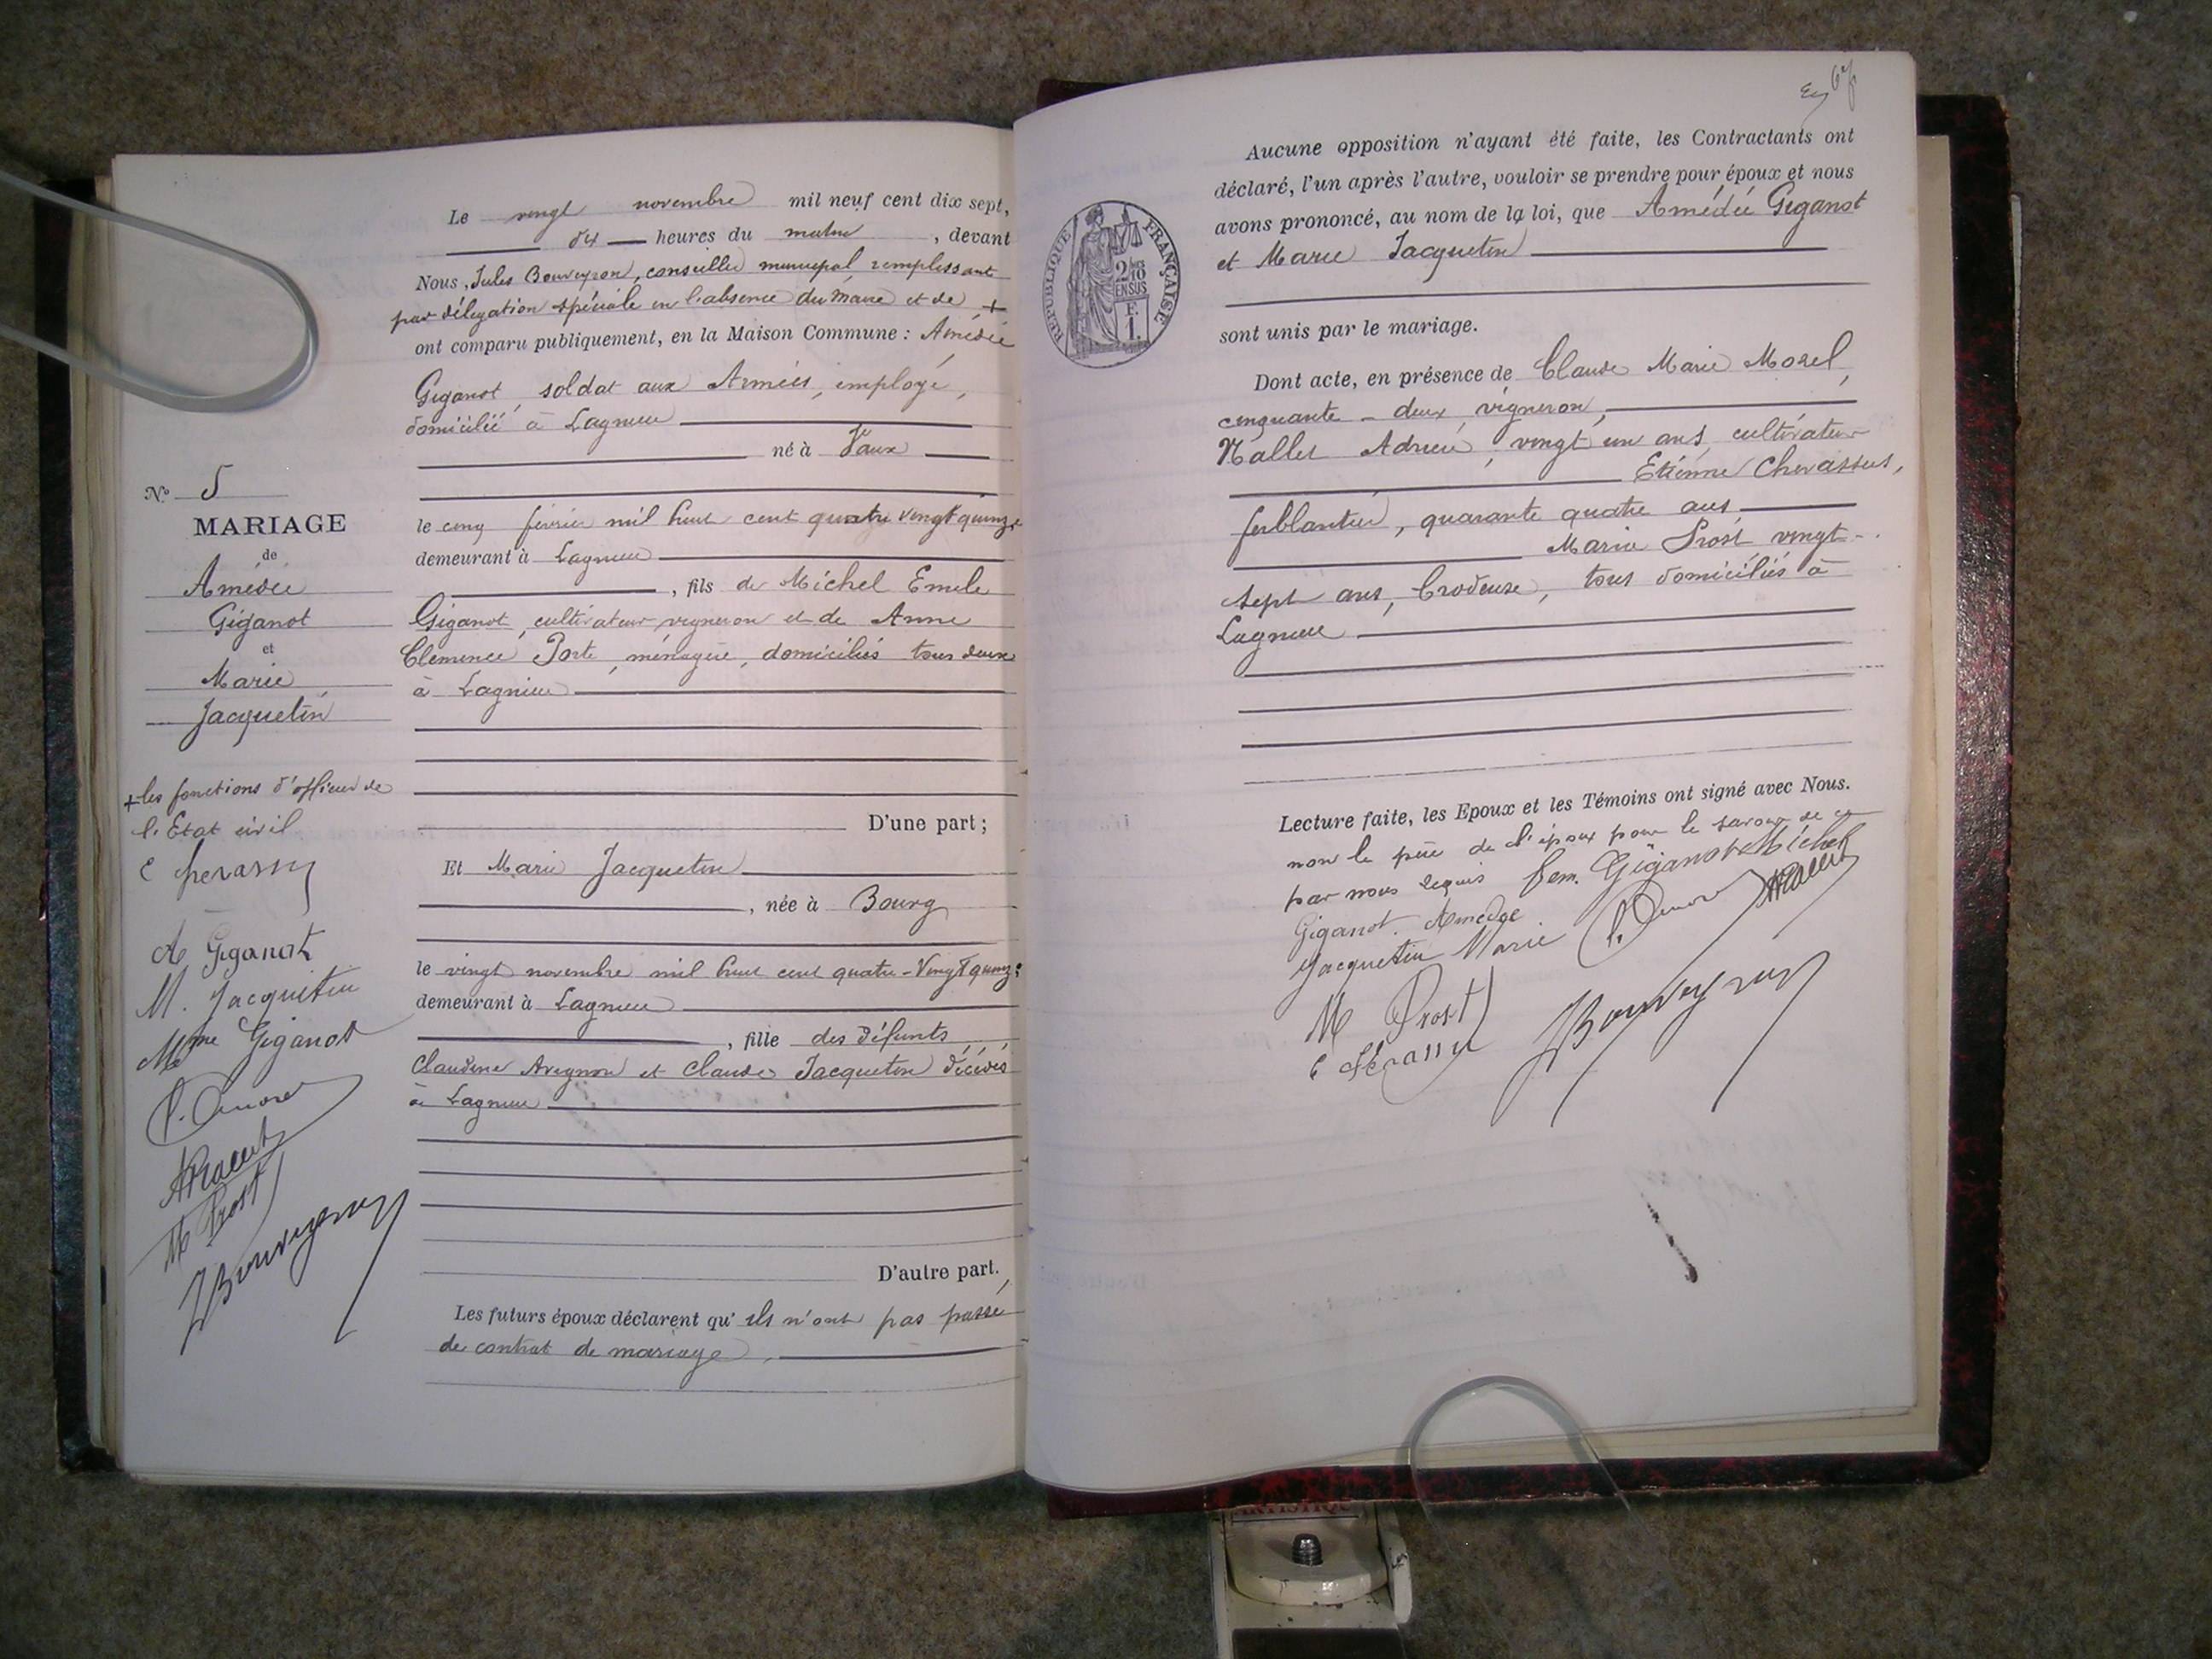 Le vingt novembre mil neuf cent dix sept,
dix heures du matin, devant
Nous, Jules Bouveyron, conseiller municipal remplissant
par délégation spéciale en l'absence du Maire et de +
ont comparu publiquement, en la Maison Commune : Amédée
Giganot, soldat aux Armées, employé,
domicilié à Lagnieu
né à Vaux
le cinq février mil huit cent quatre vingt quinze
demeurant à Lagnieu
, fils de Michel Emile
Giganot, cultivateur vigneron et de Anne
Clémence Porte, ménagère, domiciliés tous deux
à Lagnieu
D'une part ;
Et Marie Jacquetin
, née à Bourg
le vingt novembre mil huit cent quatre-Vingt quinze
demeurant à Lagnieu
, fille des défunts
Claudine Avignon et Claude Jacquetin décédés
à Lagnieu
D'autre part.
Les futurs époux déclarent qu'ils n'ont pas passé
de contrat de mariage.
N° 5
MARIAGE
de
Amédée
Giganot
et
Marie
Jacquetin
+ les fonctions d'officier de
l'Etat civil
A Giganot
M. Jacquetin
Mme Giganot
M Prost
JBouveyron
67
REPUBLIQUE FRANÇAISE
2/10
EN SUS
F.
1.
Aucune opposition n'ayant été faite, les Contractants ont
déclaré, l'un après l'autre, vouloir se prendre pour époux et nous
avons prononcé, au nom de la loi, que Amédée Giganot
et Marie Jacquetin
sont unis par le mariage.
Dont acte, en présence de Claude Marie Morel,
cinquante-deux, vigneron,
Adrien, vingt un ans, cultivateur
Etienne Chevassus,
ferblantier, quarante quatre ans,
Marie Prost vingt-
sept ans, brodeuse, tous domiciliés à
Lagnieu
Lecture faite, les Epoux et les Témoins ont signé avec Nous.
non le père de l'époux pour le savoir de ce
par nous requis fem. Giganot Michel
Giganot Amédée
Jacquetin Marie
M Prost
JBouveyron